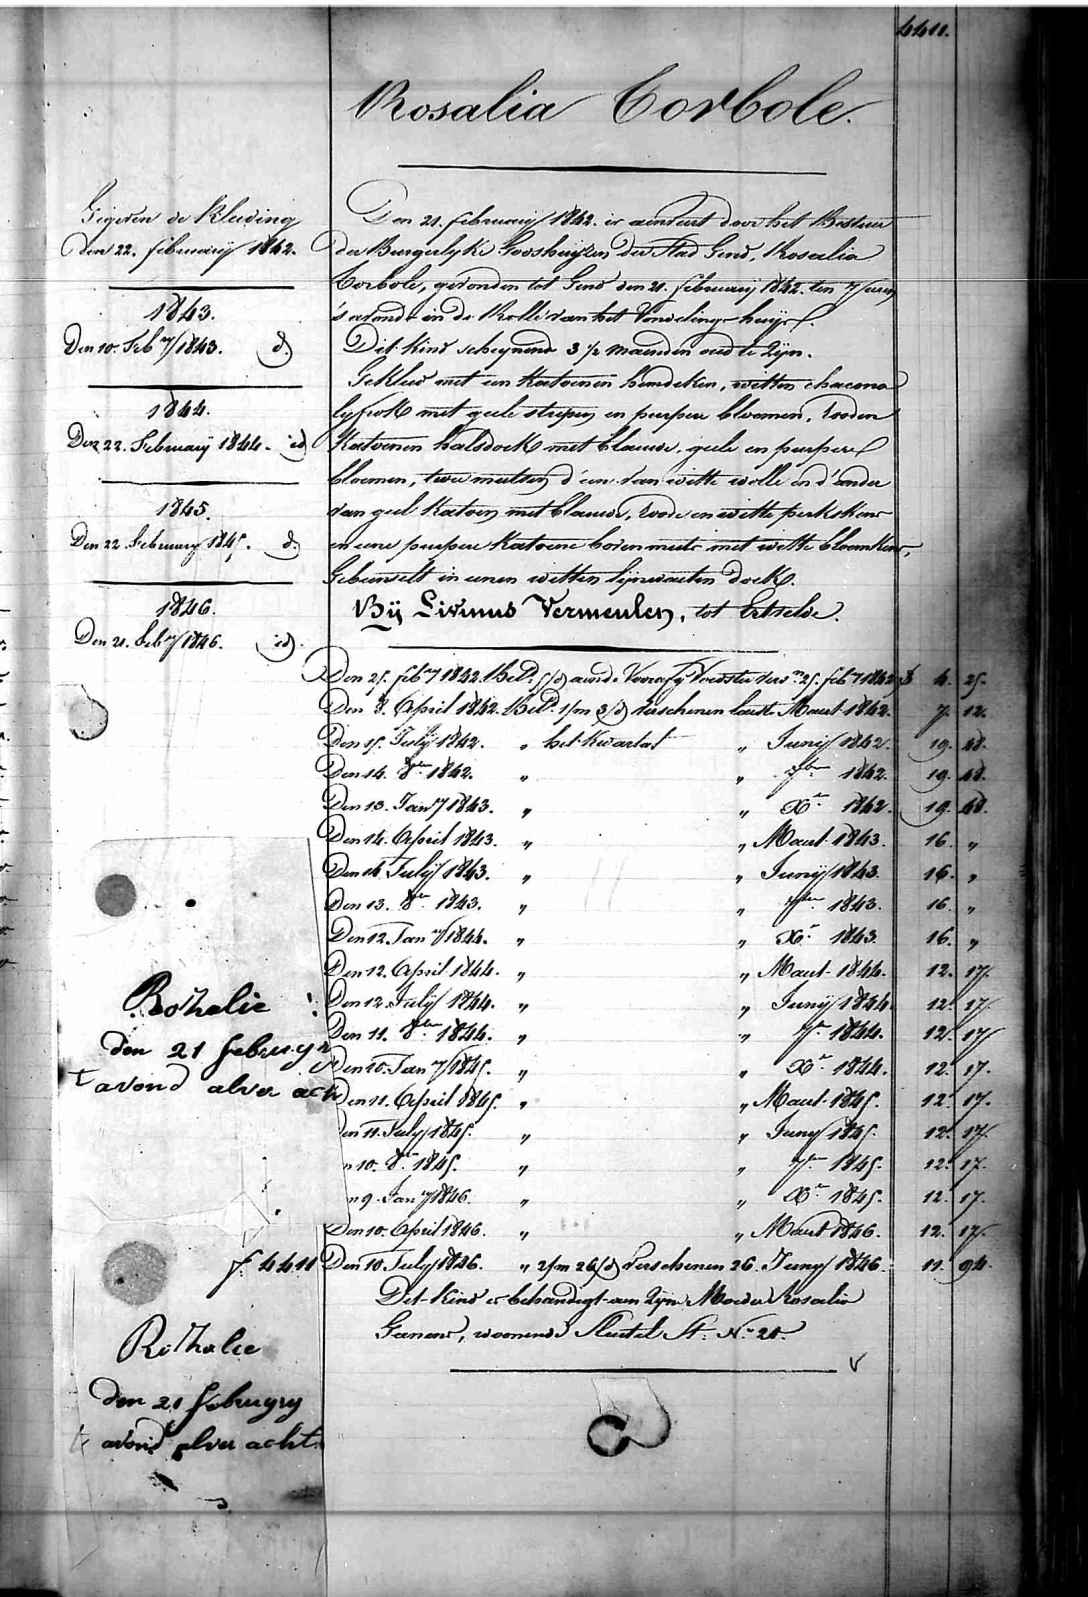 4411.
Rosalia Corbole.
Gegeven de Kleeding
den 22. february 1842.
1843.
Den 10. Feb.ry 1843. id.
1844.
Den 22. February 1844. id
1845.
Den 22. February 1845. id.
1846.
Den 21. Feb.ry 1846. id.
Den 21. february 1842. is aenveert door het Bestuer
der Burgerlyke Godshuyzen der Stad Gend, Rosalia
Corbole, gevonden tot Gend den 21. february 1842. ten 7 ½ uren
's avonds in de Rolle van het Vondelinge-huys.
Dit kind schynend 3 ½ maenden oud te zyn.
Gekleed met een Katoenen hemdeken, witten chacona
lyfrok met geele strepen en purpere bloemen, Rooden
Katoenen halsdoek met blauwe, geele en purpere
bloemen, twee mutsen d'een van witte wolle en d'ander
van geel Katoen met blauwe, Roode en witte perkskens
en eene purpere Katoene bovenmuts met witte bloemkens,
Gebunselt in eenen witten lynwaeten doek.
Bÿ Livinus Vermeulen, tot Ertvelde.
Den 25. feb.ry 1842. Bet.d aende Voedster 25. feb.ry 1842. 4. 25.
Den 8. April 1842. Bet.d 1/m 3/d verschenen laatst Maart 1842. 7. 12.
Den 15. July 1842. " het Kwartal " Juny 1842. 19. 48.
Den 14. 8ber 1842. " " 7ber 1842. 19. 48.
Den 13. Jan.ry 1843. " " Xr 1842. 19. 48.
Den 14. April 1843. " " Maart 1843. 16. "
Den 14. July 1843. " " Juny 1843. 16. "
Den 13. 8ber 1843. " " 7ber 1843. 16. "
Den 12. Jan.ry 1844. " " Xr 1843. 16. "
Den 12. April 1844. " " Maart 1844. 12. 17.
Den 12. July 1844. " " Juny 1844. 12. 17.
Den 11. 8ber 1844. " " 7r 1844. 12. 17.
Den 10. Jan.ry 1845. " " Xr 1844. 12. 17.
Den 11. April 1845. " " Maart 1845. 12. 17.
en 11. July 1845. " " Juny 1845. 12. 17.
n 10. 8r 1845. " " 7ber 1845. 12. 17.
n 9. Jan.ry 1846. " " Xr 1845. 12. 17.
Den 10. April 1846. " " Maart 1846. 12. 17.
Den 10. July 1846. " 2/m 26/d Verschenen 26. Juny 1846. 11. 94.
Dit Kind is behandigt aen zyne Moeder Rosalia
woonende Sleutel St. N.º 20.
Rothalie
den 21 februyry
t avond alver ach
f. 4411
Rothalie
den 21 februyry
t avond alver acht